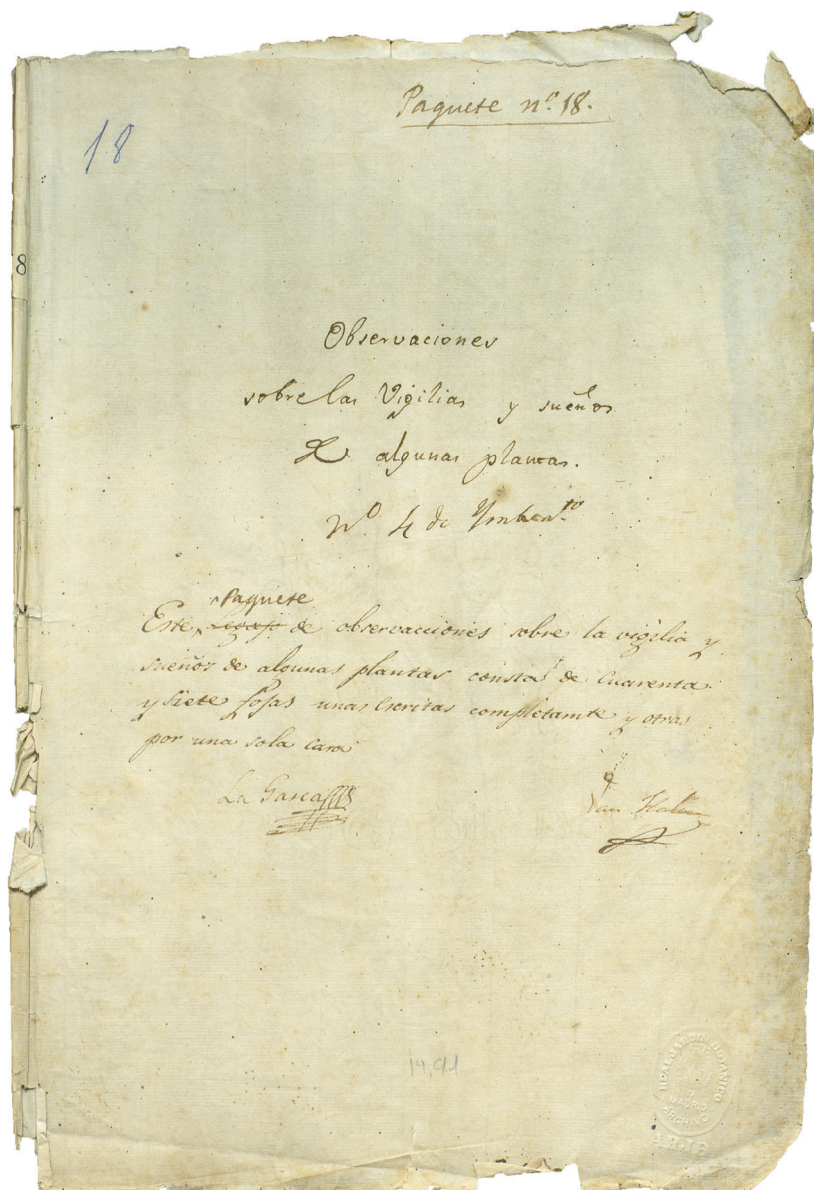 Paquete nº. 18.
18
8
Observaciones
sobre las Vigilias y sueños
de algunas plantas.
Nº. 4 de Ymbento
Paquete
Este Legajo de observacciones sobre la vigilia y
sueños de algunas plantas consta de Cuarenta
y siete fojas unas escritas completamte y otras
por una sola cara
La Gasca
REAL JARDIN BOTANICO
MADRID
ARCHIVO
A.R.J.B.